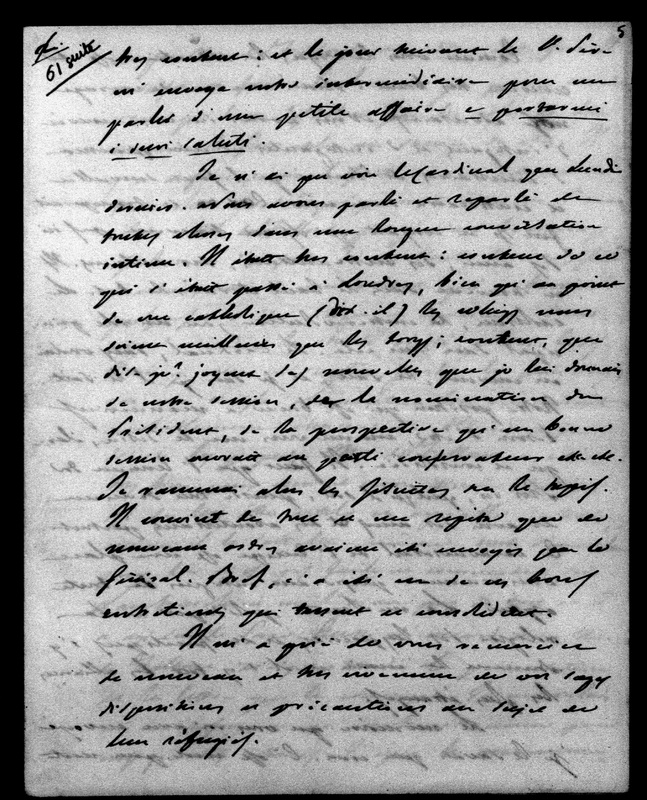 61 suite
5
très content : et le jour suivant le P. Sér-
ni envoya votre intermédiaire pour me
parler d'une petite affaire e portarmi
i suoi saluti.
Je n'ai pu voir le Cardinal que Lundi
dernier. Nous avons parlé et reparlé de
toutes choses dans une longue conversation
intime. Il était très content : content de ce
qui s'était passé à Londres, bien qu'au point
de vue catholique (dit-il) les whigs nous
soient meilleurs que les torys; content, que
dis-je? joyeux des nouvelles que je lui donnais
de notre session, de la nomination du
Président, de la perspective qu'une bonne
session ouvrait au parti conservateur etc. etc.
Je ramenai alors les Jésuites sur le tapis.
Il convint de tout et me répéta que de
nouveaux ordres avaient été envoyés par le
Général. Bref, ç'a été un de ces bons
entretiens qui consolident.
Il m'a prié de vous remercier
de nouveau et très vivement de vos sages
dispositions et précautions au sujet de
leurs réfugiés.